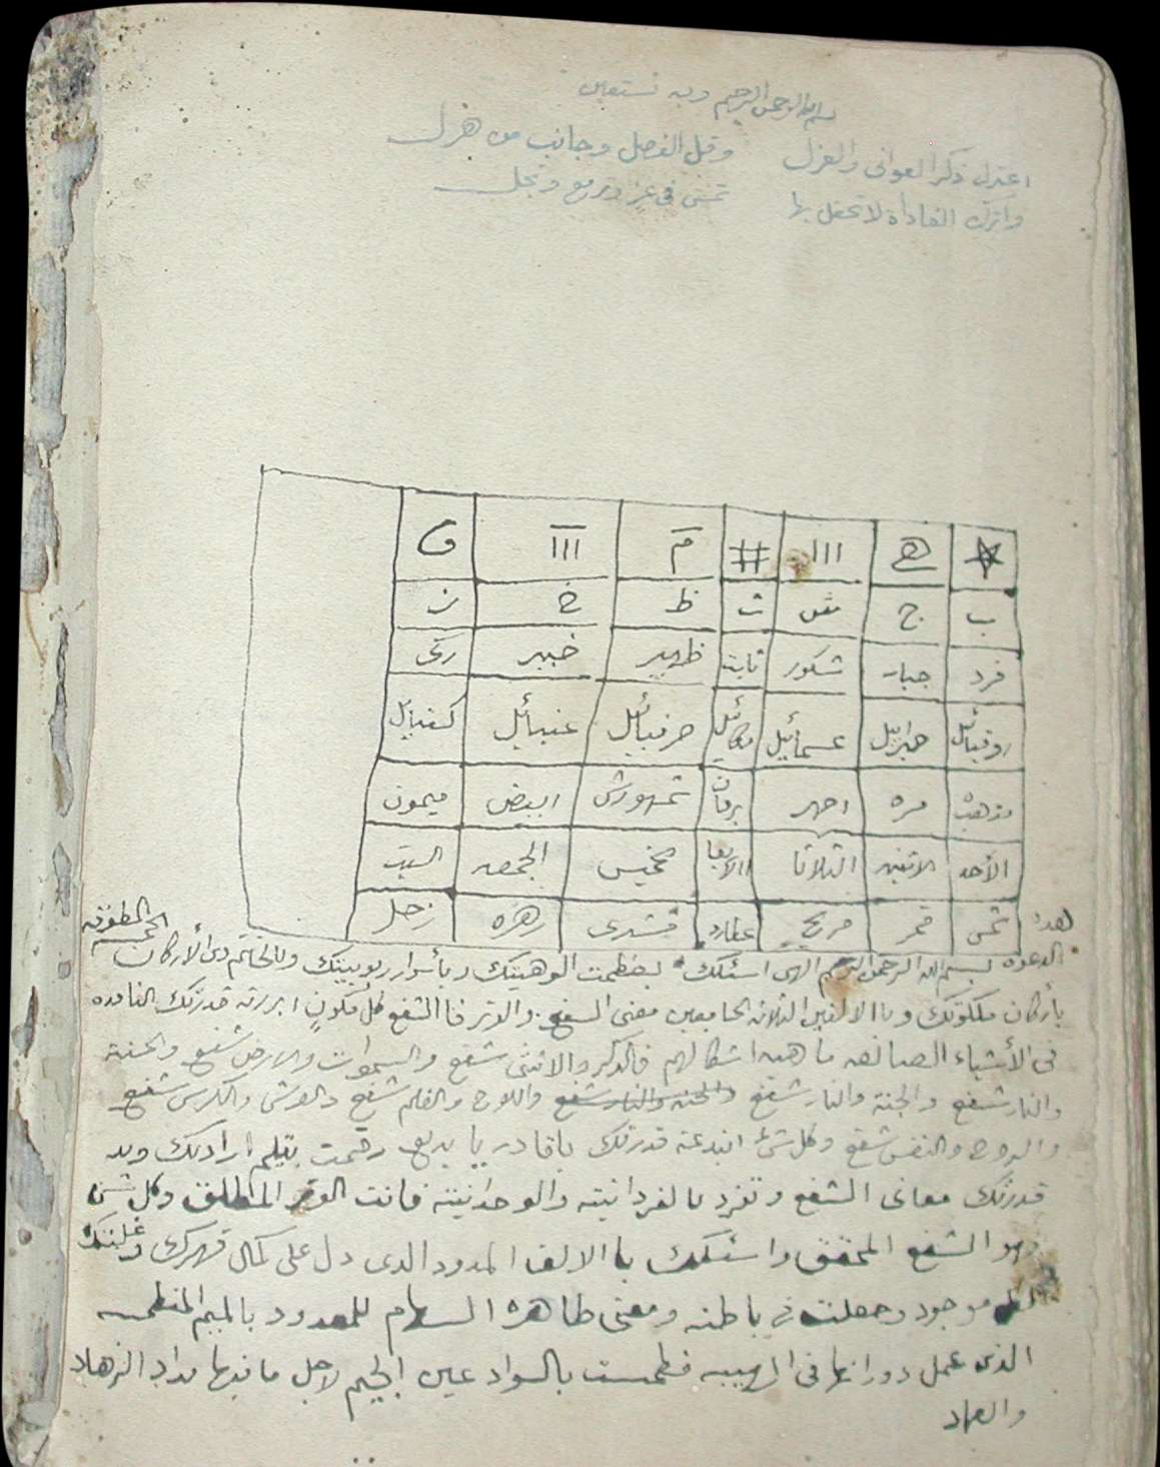 بسم الله الرحمن الرحيم وبه نستعين
اعتزل ذكر الغواني والغزل وقل الفصل وجانب من هزل
واترك الغادة لا تحفل بها تمسي في عز وترفع وتجل
ھ ااا # م ااا و
ب ج ش ث ظ خ ز
فرد جبار شكور ثابت ظهير خبير زكى
روقيائيل جبرائيل عسمائيل ميكائيل صرفيائيل عنيائيل كسفيائيل
مذهب مره احمر برقان شمهورش ابيض ميمون
الأحد الاثنين الثلاثا الاربعا خميس الجمعه السبت
شمس قمر مريخ عطارد مشترى زهره زحل
هذه
الدعوه بسم الله الرحمن الرحيم الهى اسئلك بعظمت الوهيتك وبأسرار ربوبيتك وبالخاتم ذى الأركان
بأركان ملكوتك وبالالفين الثلاثه الجامعين معنى الشفع والوتر فالشفع كل مكون ابرزته قدرتك النافده
فى الأشياء الصانعه ماهيه اشكالهم فالذكر والانثى شفع والسموات والارض شفع والجنة
والنار شفع والجنة والنار شفع والجنة والنار شفع واللوح والقلم شفع والعرش والكرسى شفع
والروح والنفس شفع وكل شئ ابتدعته قدرتك ياقادر يا بديع رقمت بقلم ارادتك ويد
قدرتك معانى الشفع وتفرد بالفردانيته والوحدانيته فانت الوتر المطلق وكل شئ
وهو الشفع المحقق واسئلك بالالف الممدود الذى دل على كمال قهرك وغلبتك
موجود وجعلت فى باطنه ومعنى ظاهره السلام للمعدود بالميم المنطمسه
الذى عمل دورانها فى الهيبه فطمست بالسواد عين الجيم لاجل مافيها مداد الزهاد
والعباد